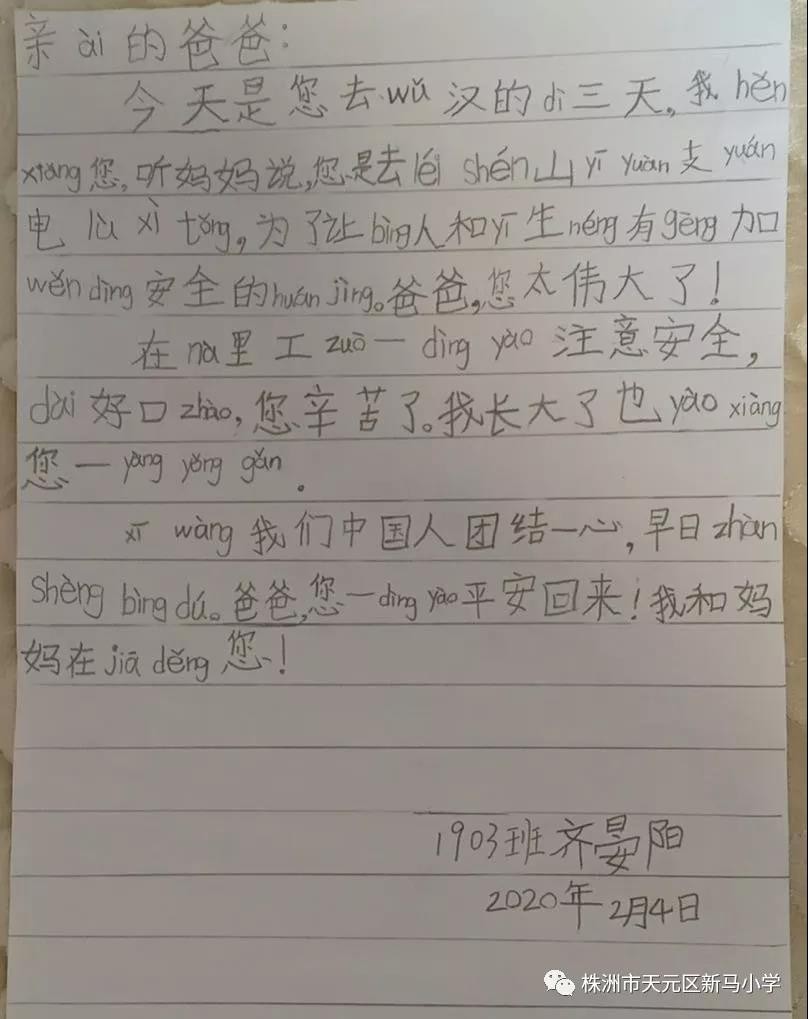 亲ài的爸爸:
今天是您去wǔ汉的dì三天,我hěn
xiǎng您,听妈妈说,您是去léi shén山yī yuàn支yuán
电lù xì tǒng,为了让bìng人和yī生néng有gèng加
wěn dìng安全的huán jìng。爸爸,您太伟大了!
在nà里工zuò一dìng yào注意安全,
dài好口zhào,您辛苦了。我长大了也yào xiàng
您一yàng yǒng gǎn.
xī wàng我们中国人团结一心,早日zhàn
shèng bìng dú。爸爸,您一dìng yào平安回来!我和妈
妈在jiā děng您!
1903班齐晏阳
2020年2月4日
株洲市天元区新马小学